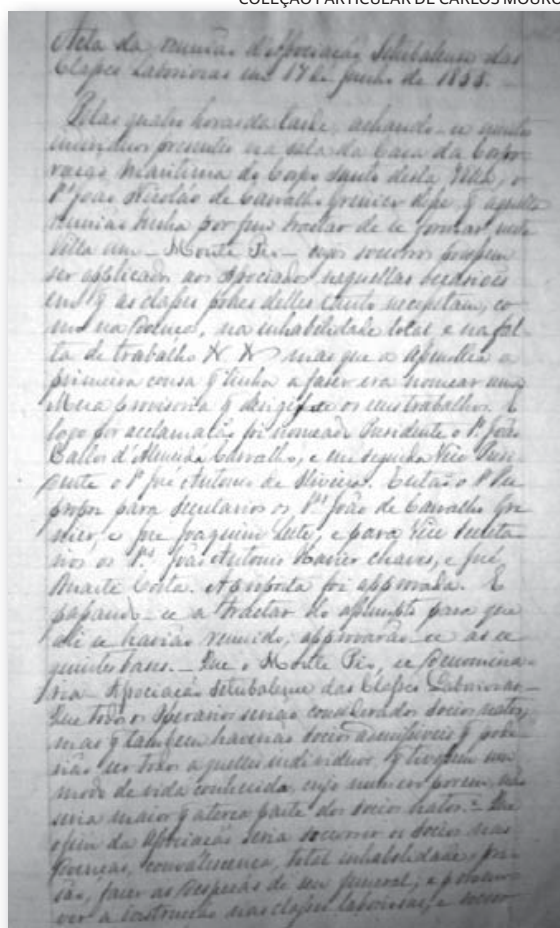 COLEÇÃO PARTICULAR DE CARLOS MOURO
Acta da reunião d'Associação Setubalense das
Classes Laboriosas em 17 de junho de 1855.
Pelas quatro horas da tarde, achando-se muitos
individuos presentes na sala da Casa da Corpo-
ração Maritima do Corpo Santo desta Villa, o
Sr. João Nicoláo de Carvalho Grenier disse q aquella
reunião tinha por fim tractar de se formar nesta
Villa um - Monte Pio - cujos soccorros possem
ser applicados aos Associados naquellas occasiões
em q as classes pobres delles tanto necessitam, co-
mo na doença, na inhabilidade total e na fal-
ta de trabalho mas que a Assemblea a
primeira cousa q tinha a faser era nomear uma
Mesa Provisoria q dirigisse os seus trabalhos. E
logo por acclamação foi nomeado Presidente o Sr. João
Carlos d'Almeida Carvalho, e em seguida Vice Presi-
dente o Sr. José Antonio de Oliveira. Então o Sr. Pre
propoz para Secretarios os Srs. João de Carvalho Gre-
nier, e José Joaquim Leite, e para Vice Secreta-
rios os Srs. João Antonio Xavier Chaves, e José
Duarte Costa. A proposta foi approvada. E
passando-se a tractar do assumpto para que
ali se havião reunido, approvarão-se as se-
guintes bases. - Que o Monte Pio, se denomina-
ria Associação Setubalense das Classes Laboriosas -
Que todos os Operarios serião considerados socios natos,
mas q tambem haverião socios q pode-
rião ser todos aquelles individuos, q tivessem um
modo de vida conhecido, cujo numero porem, não
seria maior q a terça parte dos socios natos. - Que
o fim da Associação seria soccorrer os socios nas
doenças, convalescença, total inhabilidade, pri-
são, faser as despesas do seu funeral, e promo-
ver a instrucção nas classes laboriosas, e